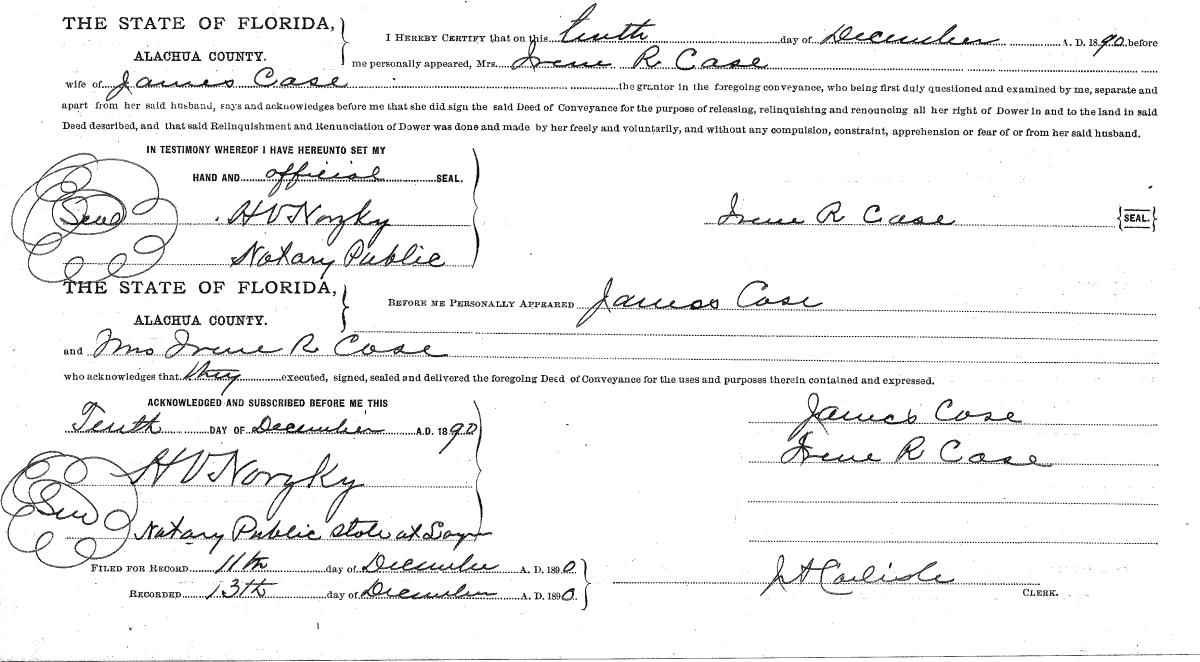 THE STATE OF FLORIDA,
ALACHUA COUNTY.
I HEREBY CERTIFY that on this tenth day of December A. D. 1890, before
me personally appeared, Mrs. Irene R Case
wife of James Case the grantor in the foregoing conveyance, who being first duly questioned and examined by me, separate and
apart from her said husband, says and acknowledges before me that she did sign the said Deed of Conveyance for the purpose of releasing, relinquishing and renouncing all her right of Dower in and to the land in said
Deed described, and that said Relinquishment and Renunciation of Dower was done and made by her freely and voluntarily, and without any compulsion, constraint, apprehension or fear of or from her said husband.
IN TESTIMONY WHEREOF I HAVE HEREUNTO SET MY
HAND AND official SEAL.
Seal H V Norzky Irene R Case {SEAL.}
Notary Public
THE STATE OF FLORIDA,
ALACHUA COUNTY.
BEFORE ME PERSONALLY APPEARED James Case
and Mrs Irene R Case
who acknowledges that they executed, signed, sealed and delivered the foregoing Deed of Conveyance for the uses and purposes therein contained and expressed.
ACKNOWLEDGED AND SUBSCRIBED BEFORE ME THIS
Tenth DAY OF December A.D. 1890
James Case
Irene R Case
H V Norzky
Seal
Notary Public State at
FILED FOR RECORD 11th day of December A. D. 1890.
RECORDED 13th day of December A. D. 1890.
Carlisle
CLERK.